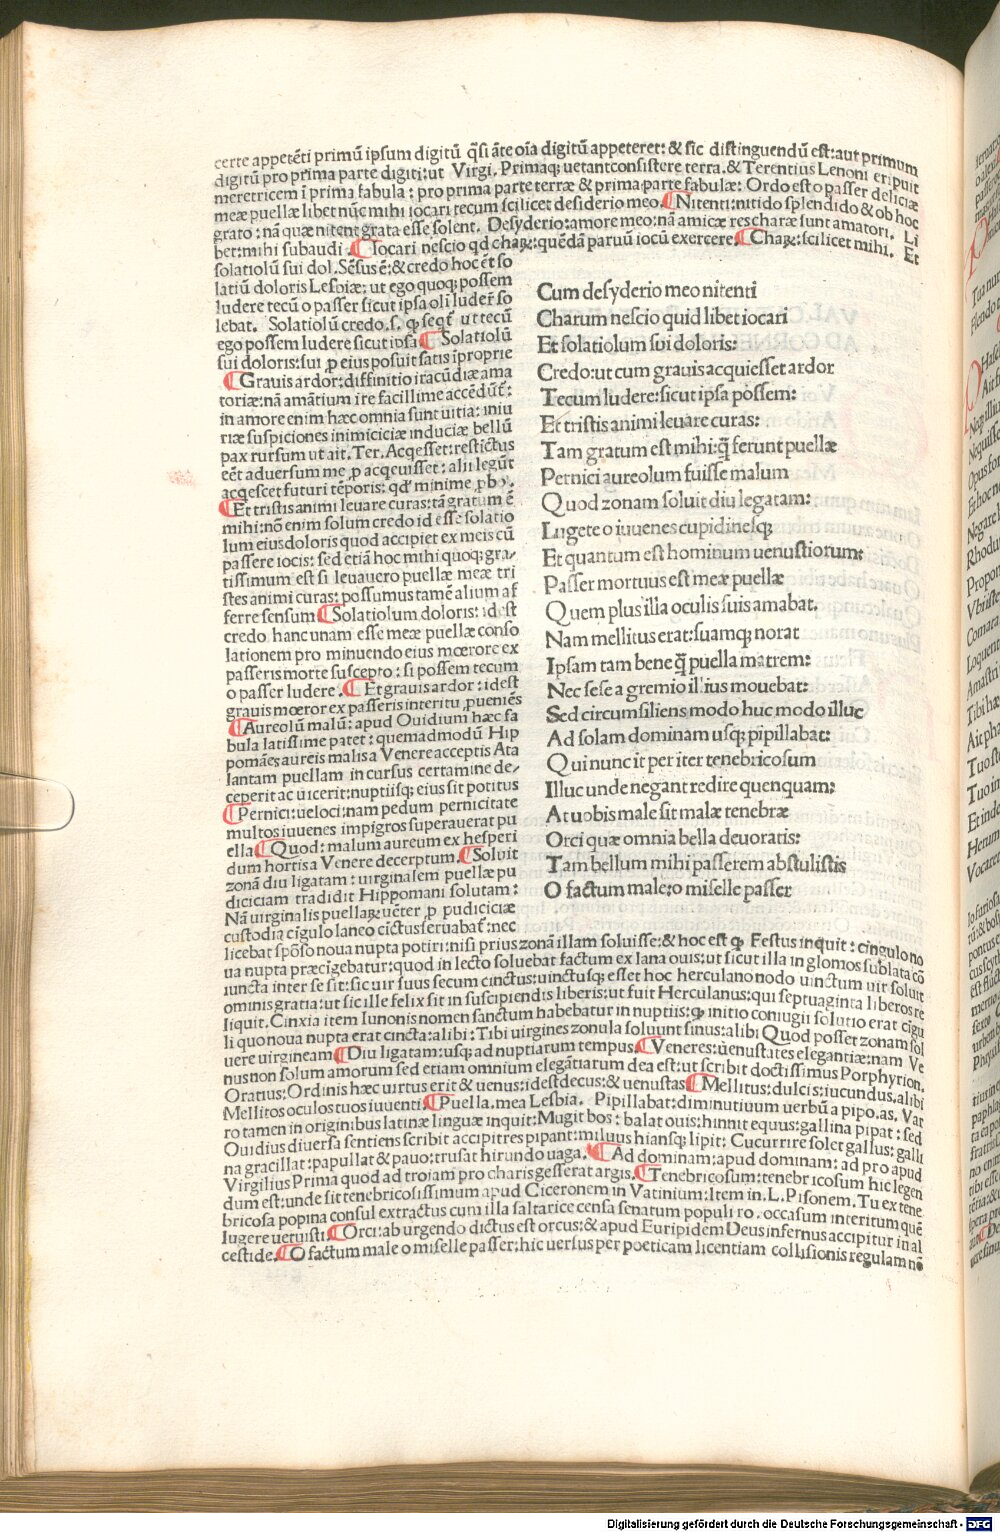 certe appetēti primū ipsum digitū q̄si āte oīa digitū appeteret: & sic distinguendū est: aut primum
digitū pro prima parte digiti: ut Virgi. Primaq; uetant consistere terra. & Terentius Lenoni eripuit
meretricem ī prima fabula: pro prima parte terræ & prima parte fabulæ: Ordo est o passer deliciæ
meæ puellæ libet nūc mihi iocari tecum scilicet desiderio meo. ¶ Nitenti: nitido splendido & ob hoc
grato: nā quæ nitent grata esse solent. Desyderio: amore meo: nā amicæ res charæ sunt amatori. Li
bet: mihi subaudi. ¶ Iocari nescio qd chaꝝ: quēdā paruū iocū exercere. ¶ Chaꝝ: scilicet mihi. Et
solatiolū sui dol. Sēsus ē: & credo hoc ēt so
latiū doloris Lesbiæ: ut ego quoq; possem
ludere tecū o passer sicut ipsa oli luder̄ so
lebat. Solatiolū credo. s. ꝙ seqt̄ ut tecū
ego possem ludere sicut ipsa ¶ Solatiolū
sui doloris: sui ꝓ eius posuit satis īproprie
¶ Grauis ardor: diffinitio iracūdiæ ama
toriæ: nā amātium ire facillime accēdūt̄:
in amore enim hæc omnia sunt uitia: iniu
riæ suspiciones inimiciciæ induciæ bellū
pax rursum ut ait. Ter. Acqesset: restictus
cēt aduersum me ꝓ acqeuisset: alii legūt
acqescet futuri tēporis: qd' minime ꝓbo.
¶ Et tristis animi leuare curas: tā gratum ē
mihi: nō enim solum credo id esse solatio
lum eius doloris quod accipiet ex meis cū
passere iocis: sed etiā hoc mihi quoq; gra/
tissimum est si leuauero puellæ meæ tri
stes animi curas: possumus tamē alium af
ferre sensum ¶ Solatiolum doloris: id est
credo hanc unam esse meæ puellæ conso
lationem pro minuendo eius mœrore ex
passeris morte suscepto: si possem tecum
o passer ludere. ¶ Et grauis ardor: id est
grauis mœror ex passeris interitu ꝓueniēs
¶ Aureolū malū: apud Ouidium hæc fa
bula latissime patet: quemadmodū Hip
pomāes aureis malis a Venere acceptis Ata
lantam puellam in cursus certamine de/
ceperit ac uicerit: nuptiisq; eius sit potitus
¶ Pernici: ueloci: nam pedum pernicitate
multos iuuenes impigros superauerat pu
ella ¶ Quod: malum aureum ex hesperi
dum hortis a Venere decerptum. ¶ Soluit
zonā diu ligatam: uirginalem puellæ pu
diciciam tradidit Hippomani solutam:
Nā uirginalis puellaꝝ uēter ꝓ pudiciciæ
custodia cīgulo laneo cīctus seruabat̄: nec
Cum desyderio meo nitenti
Charum nescio quid libet iocari
Et solatiolum sui doloris:
Credo: ut cum grauis acquiesset ardor
Tecum ludere: sicut ipsa possem:
Et tristis animi leuare curas:
Tam gratum est mihi: q̄ ferunt puellæ
Pernici aureolum fuisse malum
Quod zonam soluit diu legatam:
Lugete o iuuenes cupidinesq;
Et quantum est hominum uenustiorum:
Passer mortuus est meæ puellæ
Quem plus illa oculis suis amabat.
Nam mellitus erat: suamq; norat
Ipsam tam bene q̄ puella matrem:
Nec sese a gremio illius mouebat:
Sed circumsiliens modo huc modo illuc
Ad solam dominam usq; pipillabat:
Qui nunc it per iter tenebricosum
Illuc unde negant redire quenquam:
At uobis male sit malæ tenebræ
Orci quæ omnia bella deuoratis:
Tam bellum mihi passerem abstulistis
O factum male: o miselle passer
licebat spōso noua nupta potiri: nisi prius zonā illam soluisse: & hoc est ꝙ Festus inquit: cingulo no
ua nupta præcīgebatur: quod in lecto soluebat factum ex lana ouis: ut sicut illa in glomos sublata cō
iuncta inter se sit: sic uir suus secum cinctus: uinctusq; esset hoc herculano nodo uinctum uir soluit
ominis gratia: ut sic ille felix sit in suscipiendis liberis: ut fuit Herculanus: qui septuaginta liberos re
liquit. Cinxia item Iunonis nomen sanctum habebatur in nuptiis: ꝙ initio coniugii solutio erat cīgu
li quo noua nupta erat cincta: alibi: Tibi uirgines zonula soluunt sinus: alibi Quod posset zonam sol
uere uirgineam ¶ Diu ligatam: usq; ad nuptiarum tempus. ¶ Veneres: uenustates elegantiæ: nam Ve
nus non solum amorum sed etiam omnium elegātiarum dea est: ut scribit doctissimus Porphyrion.
Oratius: Ordinis hæc uirtus erit & uenus: id est decus: & uenustas ¶ Mellitus: dulcis: iucundus. alibi
Mellitos oculos tuos iuuenti. ¶ Puella. mea Lesbia. Pipillabat: diminutiuum uerbū a pipo. as. Var
ro tamen in originibus latinæ linguæ inquit: Mugit bos: balat ouis: hinnit equus: gallina pipat: sed
Ouidius diuersa sentiens scribit accipitres pipant: miluus hiansq; lipit: Cucurrire solet gallus: galli
na gracillat: papullat & pauo: trusat hirundo uaga. ¶ Ad dominam: apud dominam: ad pro apud
Virgilius Prima quod ad troiam pro charis gesserat argis. ¶ Tenebricosum: tenebricosum hic legen
dum est: unde sit tenebricosissimum apud Ciceronem in Vatinium: Item in. L. Pisonem. Tu ex tene
bricosa popina consul extractus cum illa saltarice censa senatum populi ro. occasum interitum quē
lugere uetuisti. ¶ Orci: ab urgendo dictus est orcus: & apud Euripidem Deus infernus accipitur in al
cestide. ¶ O factum male o miselle passer: hic uersus per poeticam licentiam collisionis regulam nō
Digitalisierung gefördert durch die Deutsche Forschungsgemeinschaft - DFG